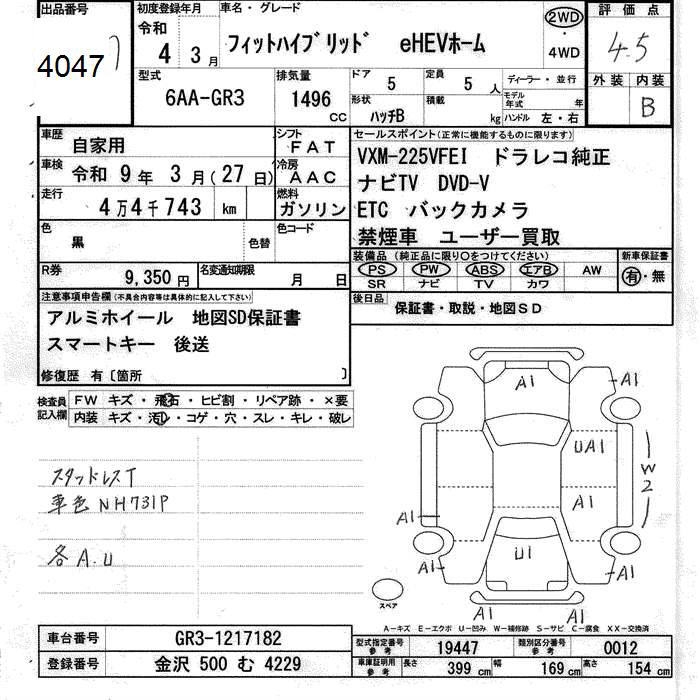 出品番号
4047
初度登録年月
令和
4 3月
車名・グレード
フィットハイブリッド eHEVホーム
2WD
・
4WD
評価点
4.5
外装 内装
B
型式
6AA-GR3
排気量
1496 CC
ドア
5
定員
5 人
形状
ハッチB
積載
kg
ディーラー・並行
モデル年式 年
ハンドル 左・右
車歴
自家用
シフト
FAT
車検
令和 9年 3月(27日)
冷房
AAC
走行
4万4千743 km
燃料
ガソリン
色
黒
色替
色コード
R券
9,350円
名変通知期限
月 日
セールスポイント(正常に機能するものに限ります)
VXM-225VFEI ドラレコ純正
ナビTV DVD-V
ETC バックカメラ
禁煙車 ユーザー買取
装備品 (純正品に限り〇をつけてください)
PS PW ABS エアB AW
SR ナビ TV カワ
新車保証書
有・無
後日品
保証書・取説・地図SD
注意事項申告欄(不具合内容等は具体的に記入して下さい)
アルミホイール 地図SD保証書
スマートキー 後送
修復歴 有〔箇所 〕
検査員
記入欄
FW キズ・飛石・ヒビ割・リペア跡・×要
内装 キズ・汚レ・コゲ・穴・スレ・キレ・破レ
スタッドレスT
車色NH731P
各A.U
A1
A1
UA1
W2
A1
A1
U1
A1
A1
A1
A1
スペア
A-キズ E-エクボ U-凹み W-補修跡 S-サビ C-腐食 XX-交換済
車台番号
GR3-1217182
登録番号
金沢 500 む 4229
型式指定番号
参考
19447
類別区分番号
参考
0012
車庫証明用
参考
長さ 399 cm
幅 169 cm
高さ 154 cm